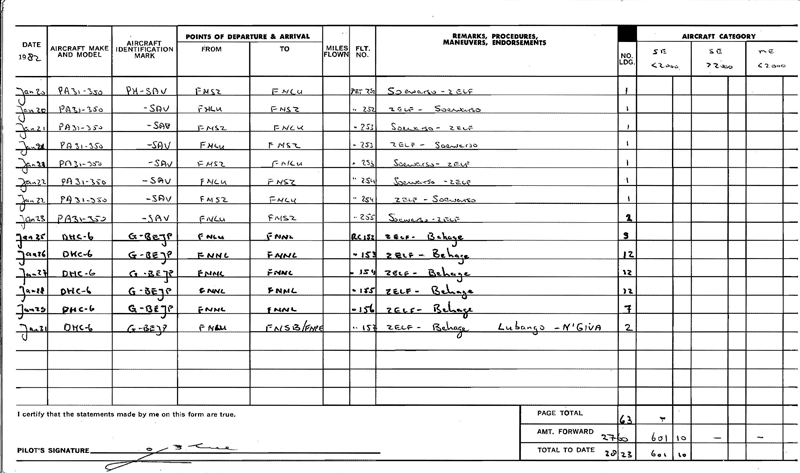 DATE 1982 AIRCRAFT MAKE AND MODEL AIRCRAFT IDENTIFICATION MARK POINTS OF DEPARTURE & ARRIVAL FROM TO MILES FLOWN FLT. NO. REMARKS, PROCEDURES, MANEUVERS, ENDORSEMENTS NO. LDG. AIRCRAFT CATEGORY SE <2000 SE >2000 ME <2000
Jan 20 PA31-350 PH-SAV FNSZ FNLU ZELF 1
Jan 20 PA31-350 -SAV FNLU FNSZ " 252 ZELF - 1
Jan 21 PA31-350 -SAV FNSZ FNLU " 253 - ZELF 1
Jan PA31-350 -SAV FNLU FNSZ " 253 ZELF - 1
Jan PA31-350 -SAV FNSZ FNLU " 253 - ZELF 1
Jan 22 PA31-350 -SAV FNLU " 254 - ZELF 1
Jan 22 PA31-350 -SAV FNLU " 254 ZELF - 1
Jan 23 PA31-350 -SAV FNLU FNSZ " 255 - ZELF 2
Jan 25 DHC-6 G-BEJP FNLU FNNL RC152 ZELF - Behage 9
Jan 26 DHC-6 G-BEJP FNNL FNNL " 153 ZELF - Behage 12
Jan 27 DHC-6 G-BEJP FNNL FNNL " 154 ZELF - Behage 12
Jan 28 DHC-6 G-BEJP FNNL FNNL " 155 ZELF - Behage 12
Jan 29 DHC-6 G-BEJP FNNL FNNL " 156 ZELF - Behage 7
Jan 31 DHC-6 G-BEJP FNSB/FNPE " 157 ZELF - Behage Lubango - N'GIVA 2
I certify that the statements made by me on this form are true.
PAGE TOTAL 63
AMT. FORWARD 2760 601 10 - -
PILOT'S SIGNATURE
TOTAL TO DATE 2823 601 10